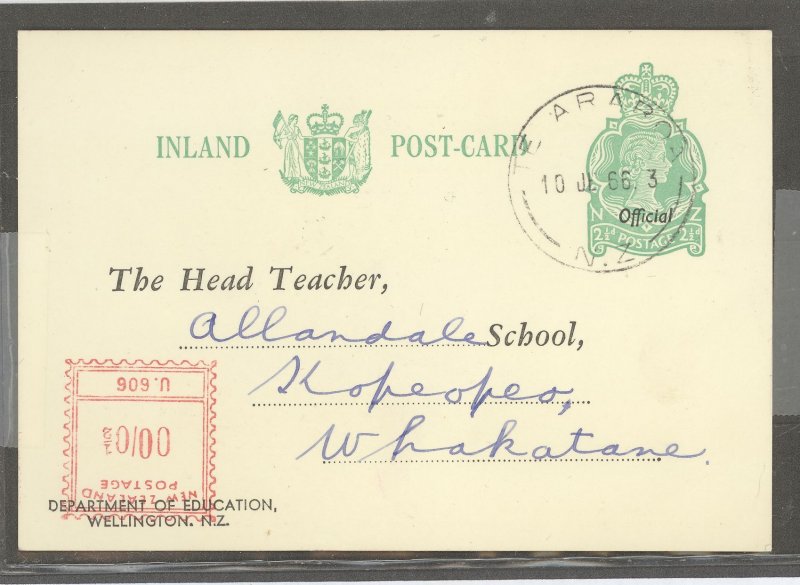 INLAND POST-CARD
TE ARAROA
10 JL 66. 3
N.Z
Official
N Z
2½d POSTAGE 2½d
The Head Teacher,
Allandale School,
Kopeopeo,
Whakatane.
U.606
00/0
NEW ZEALAND
POSTAGE
DEPARTMENT OF EDUCATION,
WELLINGTON. N.Z.